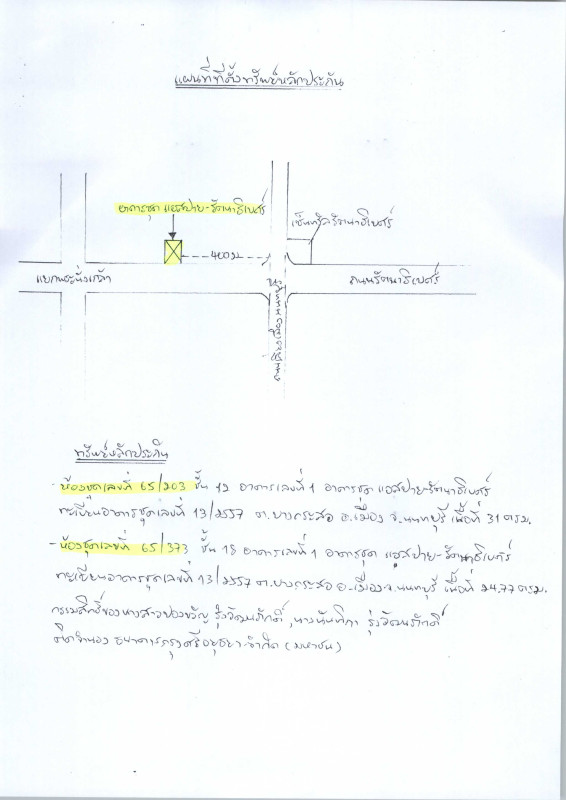 แผนที่ที่ตั้งทรัพย์หลักประกัน
อาคารชุด แอสปาย-รัตนาธิเบศร์
เซ็นทรัลรัตนาธิเบศร์
400ม
แยกพระนั่งเกล้า
ถนนรัตนาธิเบศร์
ทรัพย์หลักประกัน
- ห้องชุดเลขที่ 65/203 ชั้น 12 อาคารเลขที่ 1 อาคารชุด แอสปาย-รัตนาธิเบศร์
ทะเบียนอาคารชุดเลขที่ 13/2557 ต.บางกระสอ อ.เมือง จ.นนทบุรี เนื้อที่ 31 ตรม.
- ห้องชุดเลขที่ 65/373 ชั้น 18 อาคารเลขที่ 1 อาคารชุด แอสปาย-รัตนาธิเบศร์
ทะเบียนอาคารชุดเลขที่ 13/2557 ต.บางกระสอ อ.เมือง จ.นนทบุรี เนื้อที่ 24.77 ตรม.
กรรมสิทธิ์ของนางสาวของขวัญ รุ่งวัฒนภักดิ์, นางนันทิกา รุ่งวัฒนภักดิ์
ติดจำนอง ธนาคารกรุงศรีอยุธยา จำกัด (มหาชน)